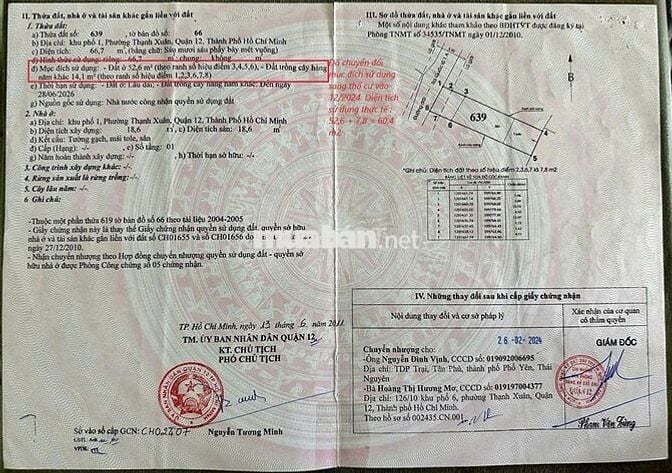 II. Thửa đất, nhà ở và tài sản khác gắn liền với đất
1. Thửa đất:
a) Thửa đất số: 639 , tờ bản đồ số: 66
b) Địa chỉ: khu phố 1, Phường Thạnh Xuân, Quận 12, Thành Phố Hồ Chí Minh
c) Diện tích: 66,7 m², (bằng chữ: Sáu mươi sáu phẩy bảy mét vuông)
d) Hình thức sử dụng: riêng: 66,7 m²; chung: không m²
đ) Mục đích sử dụng: - Đất ở 52,6 m² (theo ranh số hiệu điểm 3,4,5,6), - Đất trồng cây hàng
năm khác 14,1 m² (theo ranh số hiệu điểm 1,2,3,6,7,8)
e) Thời hạn sử dụng: - Đất ở: Lâu dài; - Đất trồng cây hàng năm khác: Đến ngày
28/06/2026
g) Nguồn gốc sử dụng: Nhà nước công nhận quyền sử dụng đất
2. Nhà ở:
a) Địa chỉ: khu phố 1, Phường Thạnh Xuân, Quận 12, Thành Phố Hồ Chí Minh
b) Diện tích xây dựng: 18,6 m², c) Diện tích sàn: 18,6 m²
d) Kết cấu: Tường gạch, mái tole, sàn
đ) Cấp (Hạng): -/- , e) Số tầng: 01
g) Năm hoàn thành xây dựng: -/- , h) Thời hạn sở hữu: -/-
3. Công trình xây dựng khác: -/-
4. Rừng sản xuất là rừng trồng: -/-
5. Cây lâu năm: -/-
6. Ghi chú:
-Thuộc một phần thửa 619 tờ bản đồ số 66 theo tài liệu 2004-2005
- Giấy chứng nhận này là thay thế Giấy chứng nhận quyền sử dụng đất, quyền sở hữu
nhà ở và tài sản khác gắn liền với đất số CH01655 và số CH01656 do
27/12/2010.
- Nhận chuyển nhượng theo Hợp đồng chuyển nhượng quyền sử dụng đất - quyền sở
hữu nhà ở được Phòng Công chứng số 05 chứng nhận.
Đã chuyển đổi
mục đích sử dụng
sang thổ cư vào
12/2024. Diện tích
sử dụng thực tế :
52,6 + 7,8 = 60,4
m2
muabán.net
TP. Hồ Chí Minh, ngày 13 tháng 6 năm 2011
TM. ỦY BAN NHÂN DÂN QUẬN 12
KT. CHỦ TỊCH
PHÓ CHỦ TỊCH
Nguyễn Tường Minh
Số vào sổ cấp GCN: CH02407
III. Sơ đồ thửa đất, nhà ở và tài sản khác gắn liền với đất
Một số nội dung khác tham khảo theo BĐHTVT được đăng ký tại
Phòng TNMT số 34535/TNMT ngày 01/12/2010.
B
639
*Ghi chú: Diện tích đất thuộc số hiệu điểm 2,3,6,7 là 7,8 m2
IV. Những thay đổi sau khi cấp giấy chứng nhận
Nội dung thay đổi và cơ sở pháp lý
Xác nhận của cơ quan
có thẩm quyền
26-02-2024
GIÁM ĐỐC
Chuyển nhượng cho:
-Ông Nguyễn Đình Vịnh, CCCD số: 019092006695
Địa chỉ: TDP Trại, Tân Phú, thành phố Phổ Yên, Thái
Nguyên
-Bà Hoàng Thị Hương Mơ, CCCD số: 019197004377
Địa chỉ: 126/10 khu phố 6, phường Thạnh Xuân, Quận
12, Thành phố Hồ Chí Minh.
Theo hồ sơ số 002435.CN.001
Phạm Văn Dũng